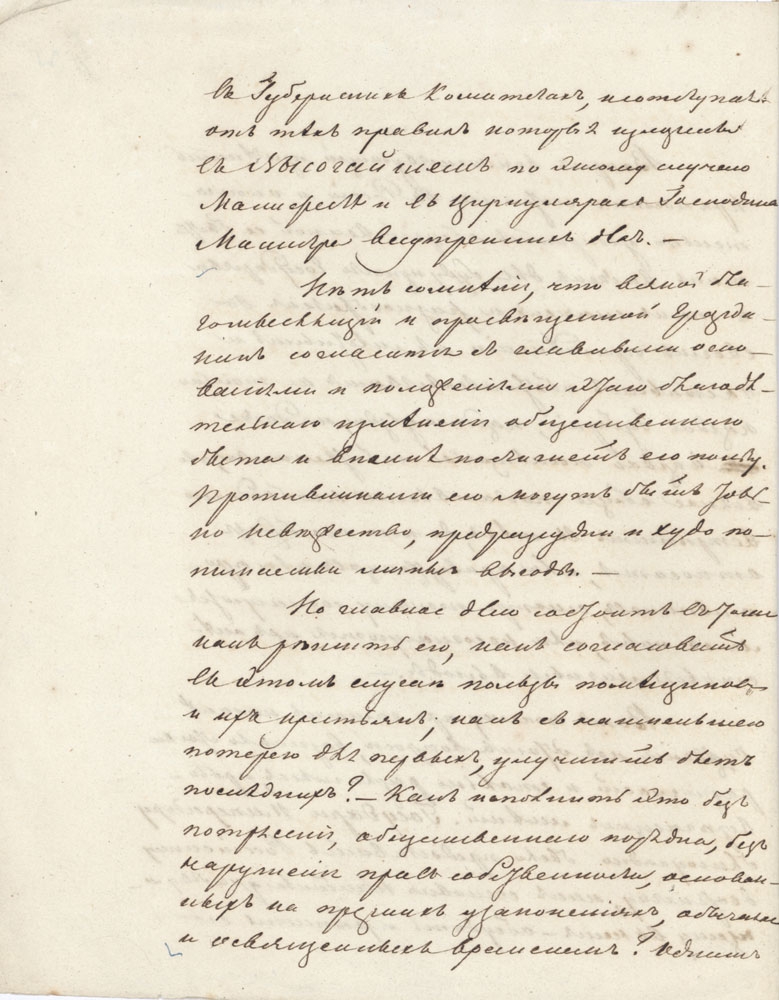 въ Губернскихъ Комитетахъ, неотступая
отъ тѣхъ правилъ которыя изложены
въ Высочайшемъ по этому случаю
Манифестѣ и въ Циркулярахъ Господина
Министра Внутреннихъ дѣлъ. —
Нѣтъ сомнѣнія, что всякой бла-
гомыслящій и просвѣщенной Гражда-
нинъ согласится съ главными осно-
ваніями и положеніями этаго благодѣ-
тельнаго измѣненія общественнаго
быта и вполнѣ постигнетъ его пользу.
Противниками его могутъ быть толь-
ко невѣжество, предразсудки и худо по-
нимаемыя личныя выгоды. —
Но главное дѣло состоитъ въ томъ
какъ рѣшить его, какъ согласовать
въ этомъ случаѣ пользы помѣщиковъ
и ихъ крестьянъ; какъ съ наименьшею
потерею для первыхъ, улучшить бытъ
послѣднихъ? — Какъ исполнить это безъ
потрясенія, общественнаго порядка, безъ
нарушенія правъ собственности, основан-
ныхъ на прежнихъ узаконеніяхъ, обычаяхъ
и освященныхъ временемъ? Однимъ